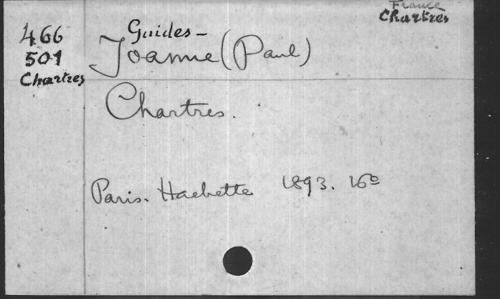 France
Chartres
466
501
Chartres
Guides-
Joanne (Paul)
Chartres.
Paris. Hachette 1893. 16º